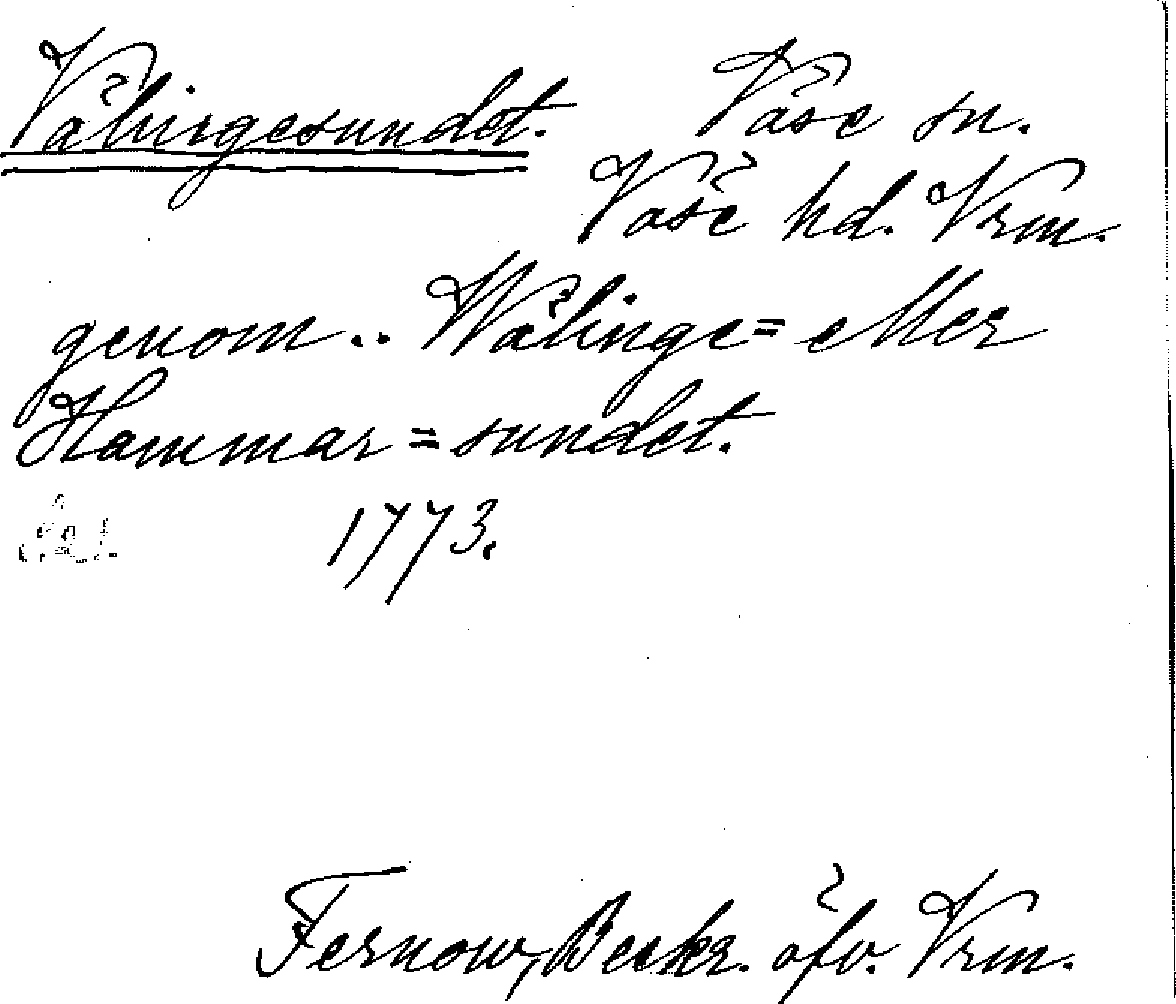 Välingesundet. Väse sn.
Väse hd. Vrm.
genom .. Wälinge= eller
Hammar=sundet.
1773.
Fernow, Beskr. öfv. Vrm.